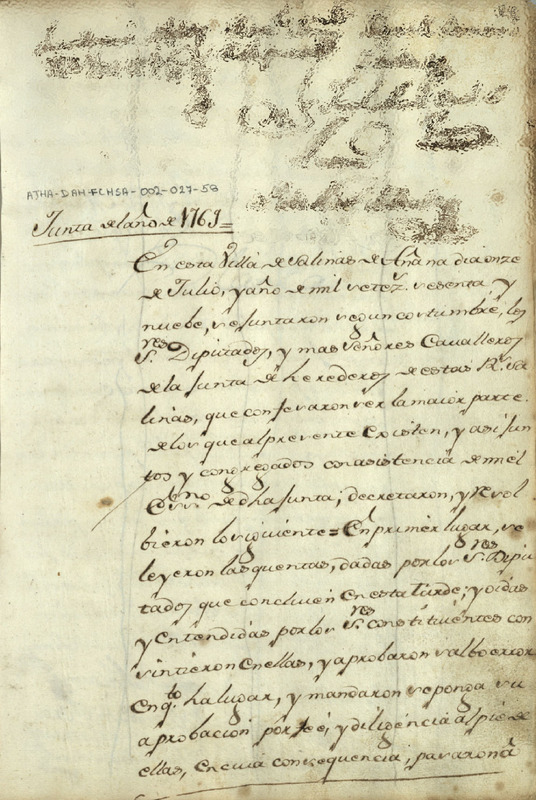 ATHA-DAH-FCHSA-002-027-58
Junta del año de 1769=
En esta Villa de Salinas de Añana dia onze
de Julio, y año de mil setez.s sesenta y
nuebe, se Juntaron segun costumbre, los
S.res Diputados, y mas Señores Cavalleros
de la Junta de herederos de estas R.s Sa
linas, que confesaron ser la maior parte
de los que al presente Existen, y así Jun
tos y congregados con asistencia de mi el
Ess.no de dha Junta; decretaron, y Resol
bieron lo siguiente= En primer lugar, se
leyeron las quentas, dadas por los S.res Dipu
tados que concluien en esta tarde; y oidas
y Entendidas por los S.res constituientes con
sintieron en ellas, y aprobaron salbo error
en q.to ha lugar, y mandaron se ponga su
aprobacion por feé, y diligencia al pie de
ellas, en cuia consequencia, pasaron á